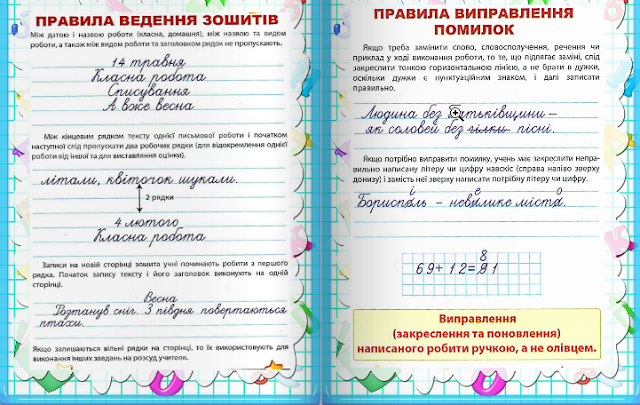 ПРАВИЛА ВЕДЕННЯ ЗОШИТІВ
Між датою і назвою роботи (класна, домашня), між назвою та видом
роботи, а також між видом роботи та заголовком рядок не пропускають.
14 травня
Класна робота
Списування
А вже весна
Між кінцевим рядком тексту однієї письмової роботи і початком
наступної слід пропускати два робочих рядка (для відокремлення однієї
роботи від іншої та для виставлення оцінки).
літали, квіточок шукали.
2 рядки
4 лютого
Класна робота
Записи на новій сторінці зошита учні починають робити з першого
рядка. Початок запису тексту і його заголовок виконують на одній
сторінці.
Весна
Розтанув сніг. З півдня повертаються
птахи.
Якщо залишаються вільні рядки на сторінці, то їх використовують для
виконання інших завдань на розсуд учителя.
ПРАВИЛА ВИПРАВЛЕННЯ
ПОМИЛОК
Якщо треба замінити слово, словосполучення, речення чи
приклад у ході виконання роботи, то те, що підлягає заміні, слід
закреслити тонкою горизонтальною лінією, а не брати в дужки,
оскільки дужки є пунктуаційним знаком, і далі записати
правильно.
Людина без Батьківщини –
як соловей без гілки пісні.
Якщо потрібно виправити помилку, учень має закреслити непра-
вильно написану літеру чи цифру навскіс (справа наліво зверху
донизу) і замість неї зверху написати потрібну літеру чи цифру.
і е о
Бориспель – невилике міста.
8
69 + 12 = 91
Виправлення
(закреслення та поновлення)
написаного робити ручкою, а не олівцем.